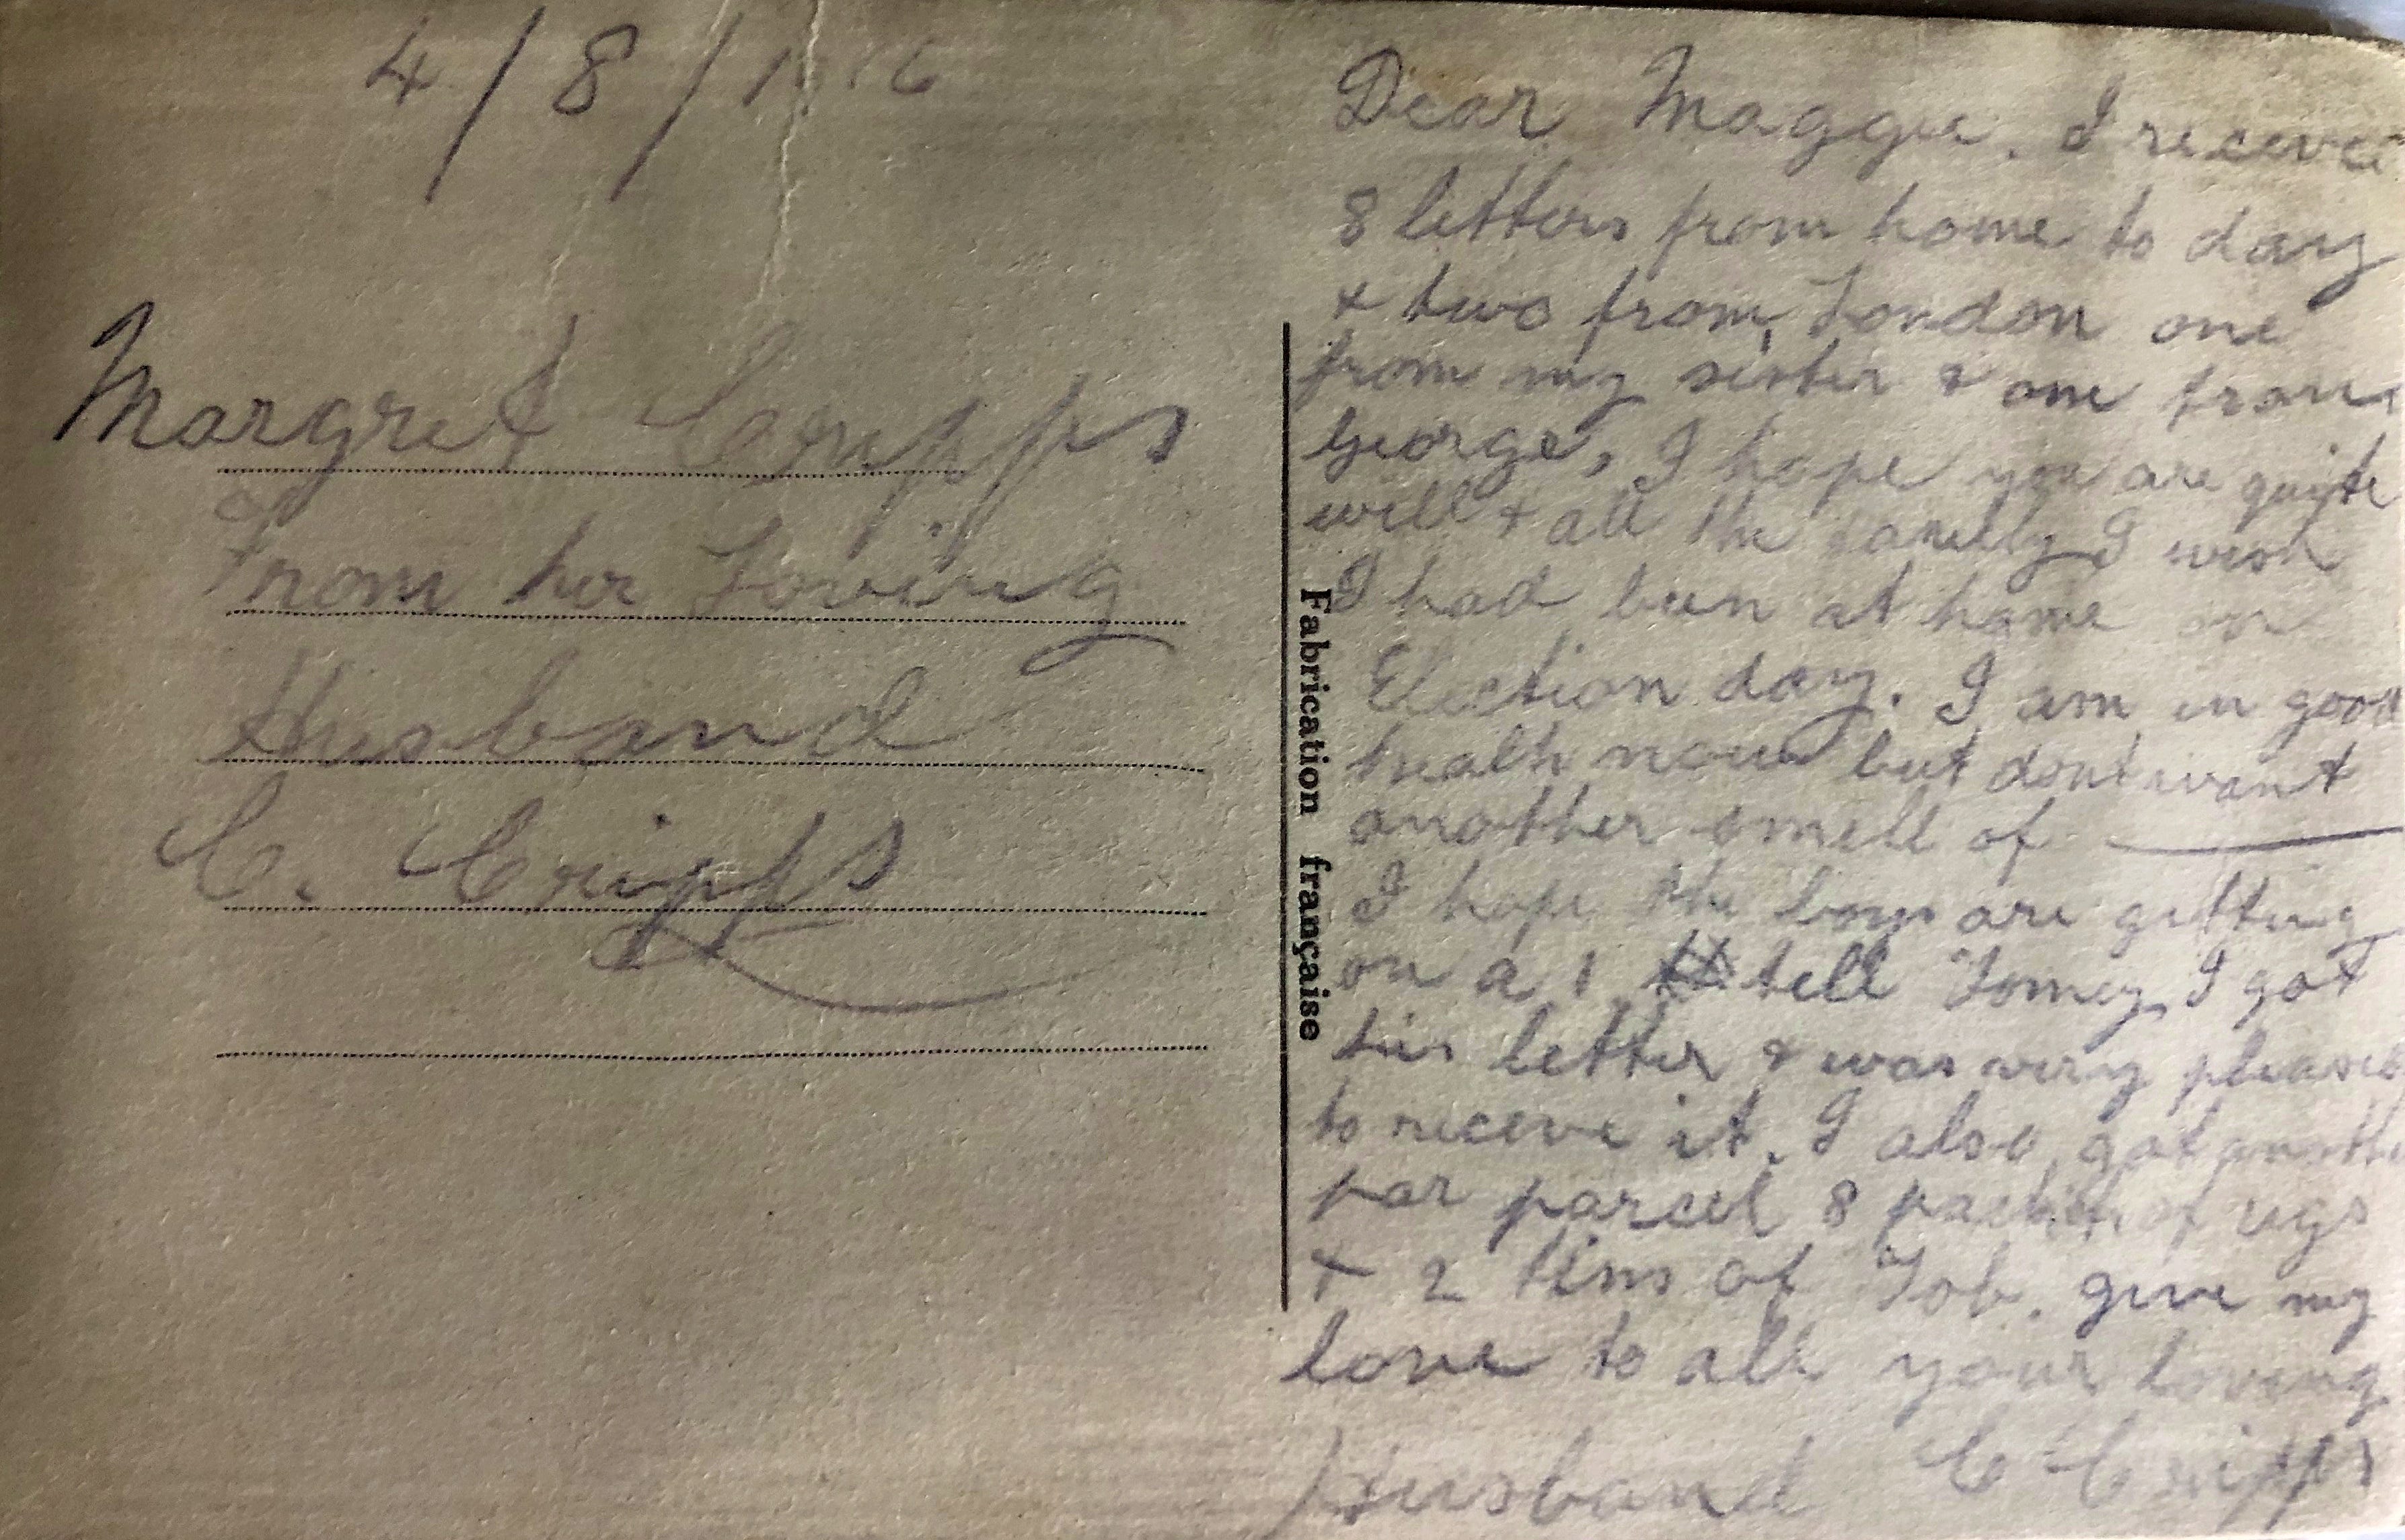 4/8/1916
Margret Cripps
From her Loving
Husband
C. Cripps
Fabrication française
Dear Maggie. I receved
8 letters from home to day
& two from London one
from my sister & one from
George, I hope you are quite
well & all the family I wish
I had been at home on
Election day. I am in good
health now but dont want
another smell of
I hope the boys are getting
on a 1 tell Tomey I got
his letter & was very pleased
to receve it. I also got another
par parcel 8 packets of cigs
+ 2 tins of Tob. give my
love to all your loving
Husband C Cripps